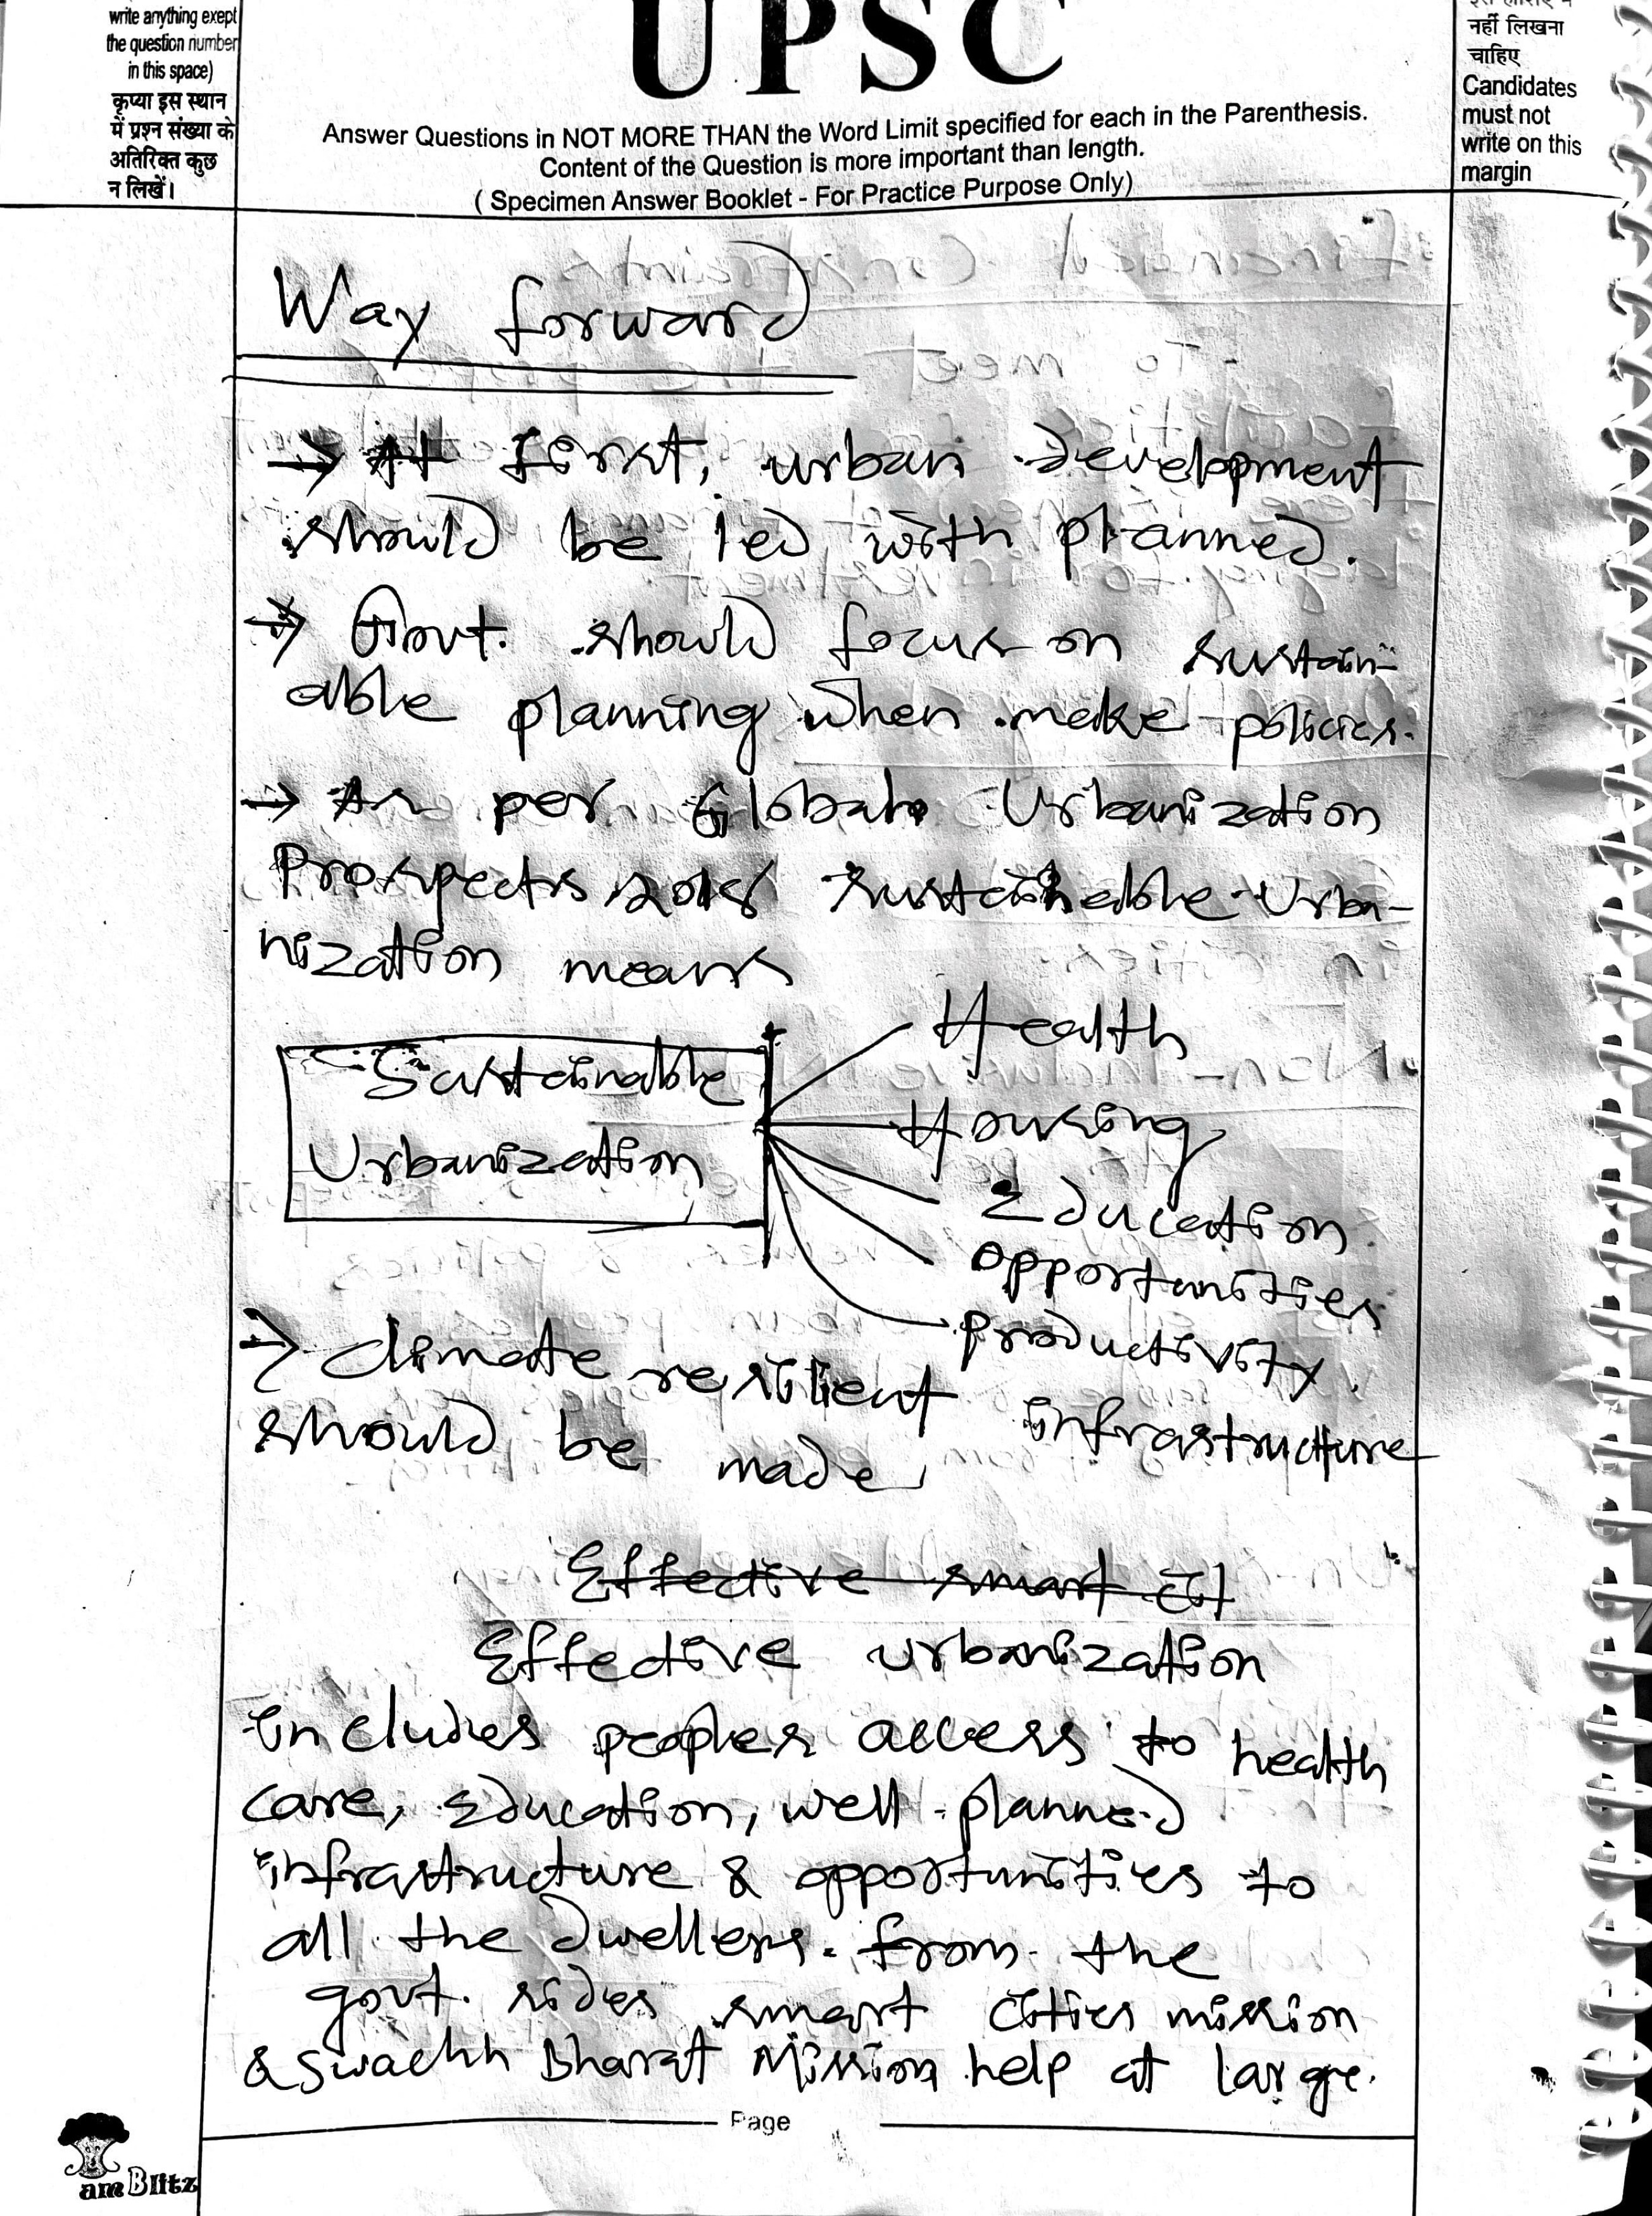 write anything exept
the question number
in this space)
कृप्या इस स्थान
में प्रश्न संख्या के
अतिरिक्त कुछ
न लिखें।
UPSC
Answer Questions in NOT MORE THAN the Word Limit specified for each in the Parenthesis.
Content of the Question is more important than length.
( Specimen Answer Booklet - For Practice Purpose Only)
नहीं लिखना
चाहिए
Candidates
must not
write on this
margin
Way forward
→ At first, urban development
should be led with planned.
→ Govt. should focus on sustain-
able planning when make policies.
→ As per Global Urbanization
Prospects, 2018 sustainable Urba-
nization means
Sustainable
Urbanization
Health
Housing
Education
opportunities
productivity
→ climate resilient infrastructure
should be made
Effective smart cit
Effective urbanization
includes peoples access to health
care, Education, well planned
infrastructure & opportunities to
all the dwellers. from the
govt. sides smart cities mission
& swachh Bharat Mission help at large.
Page
am Blitz